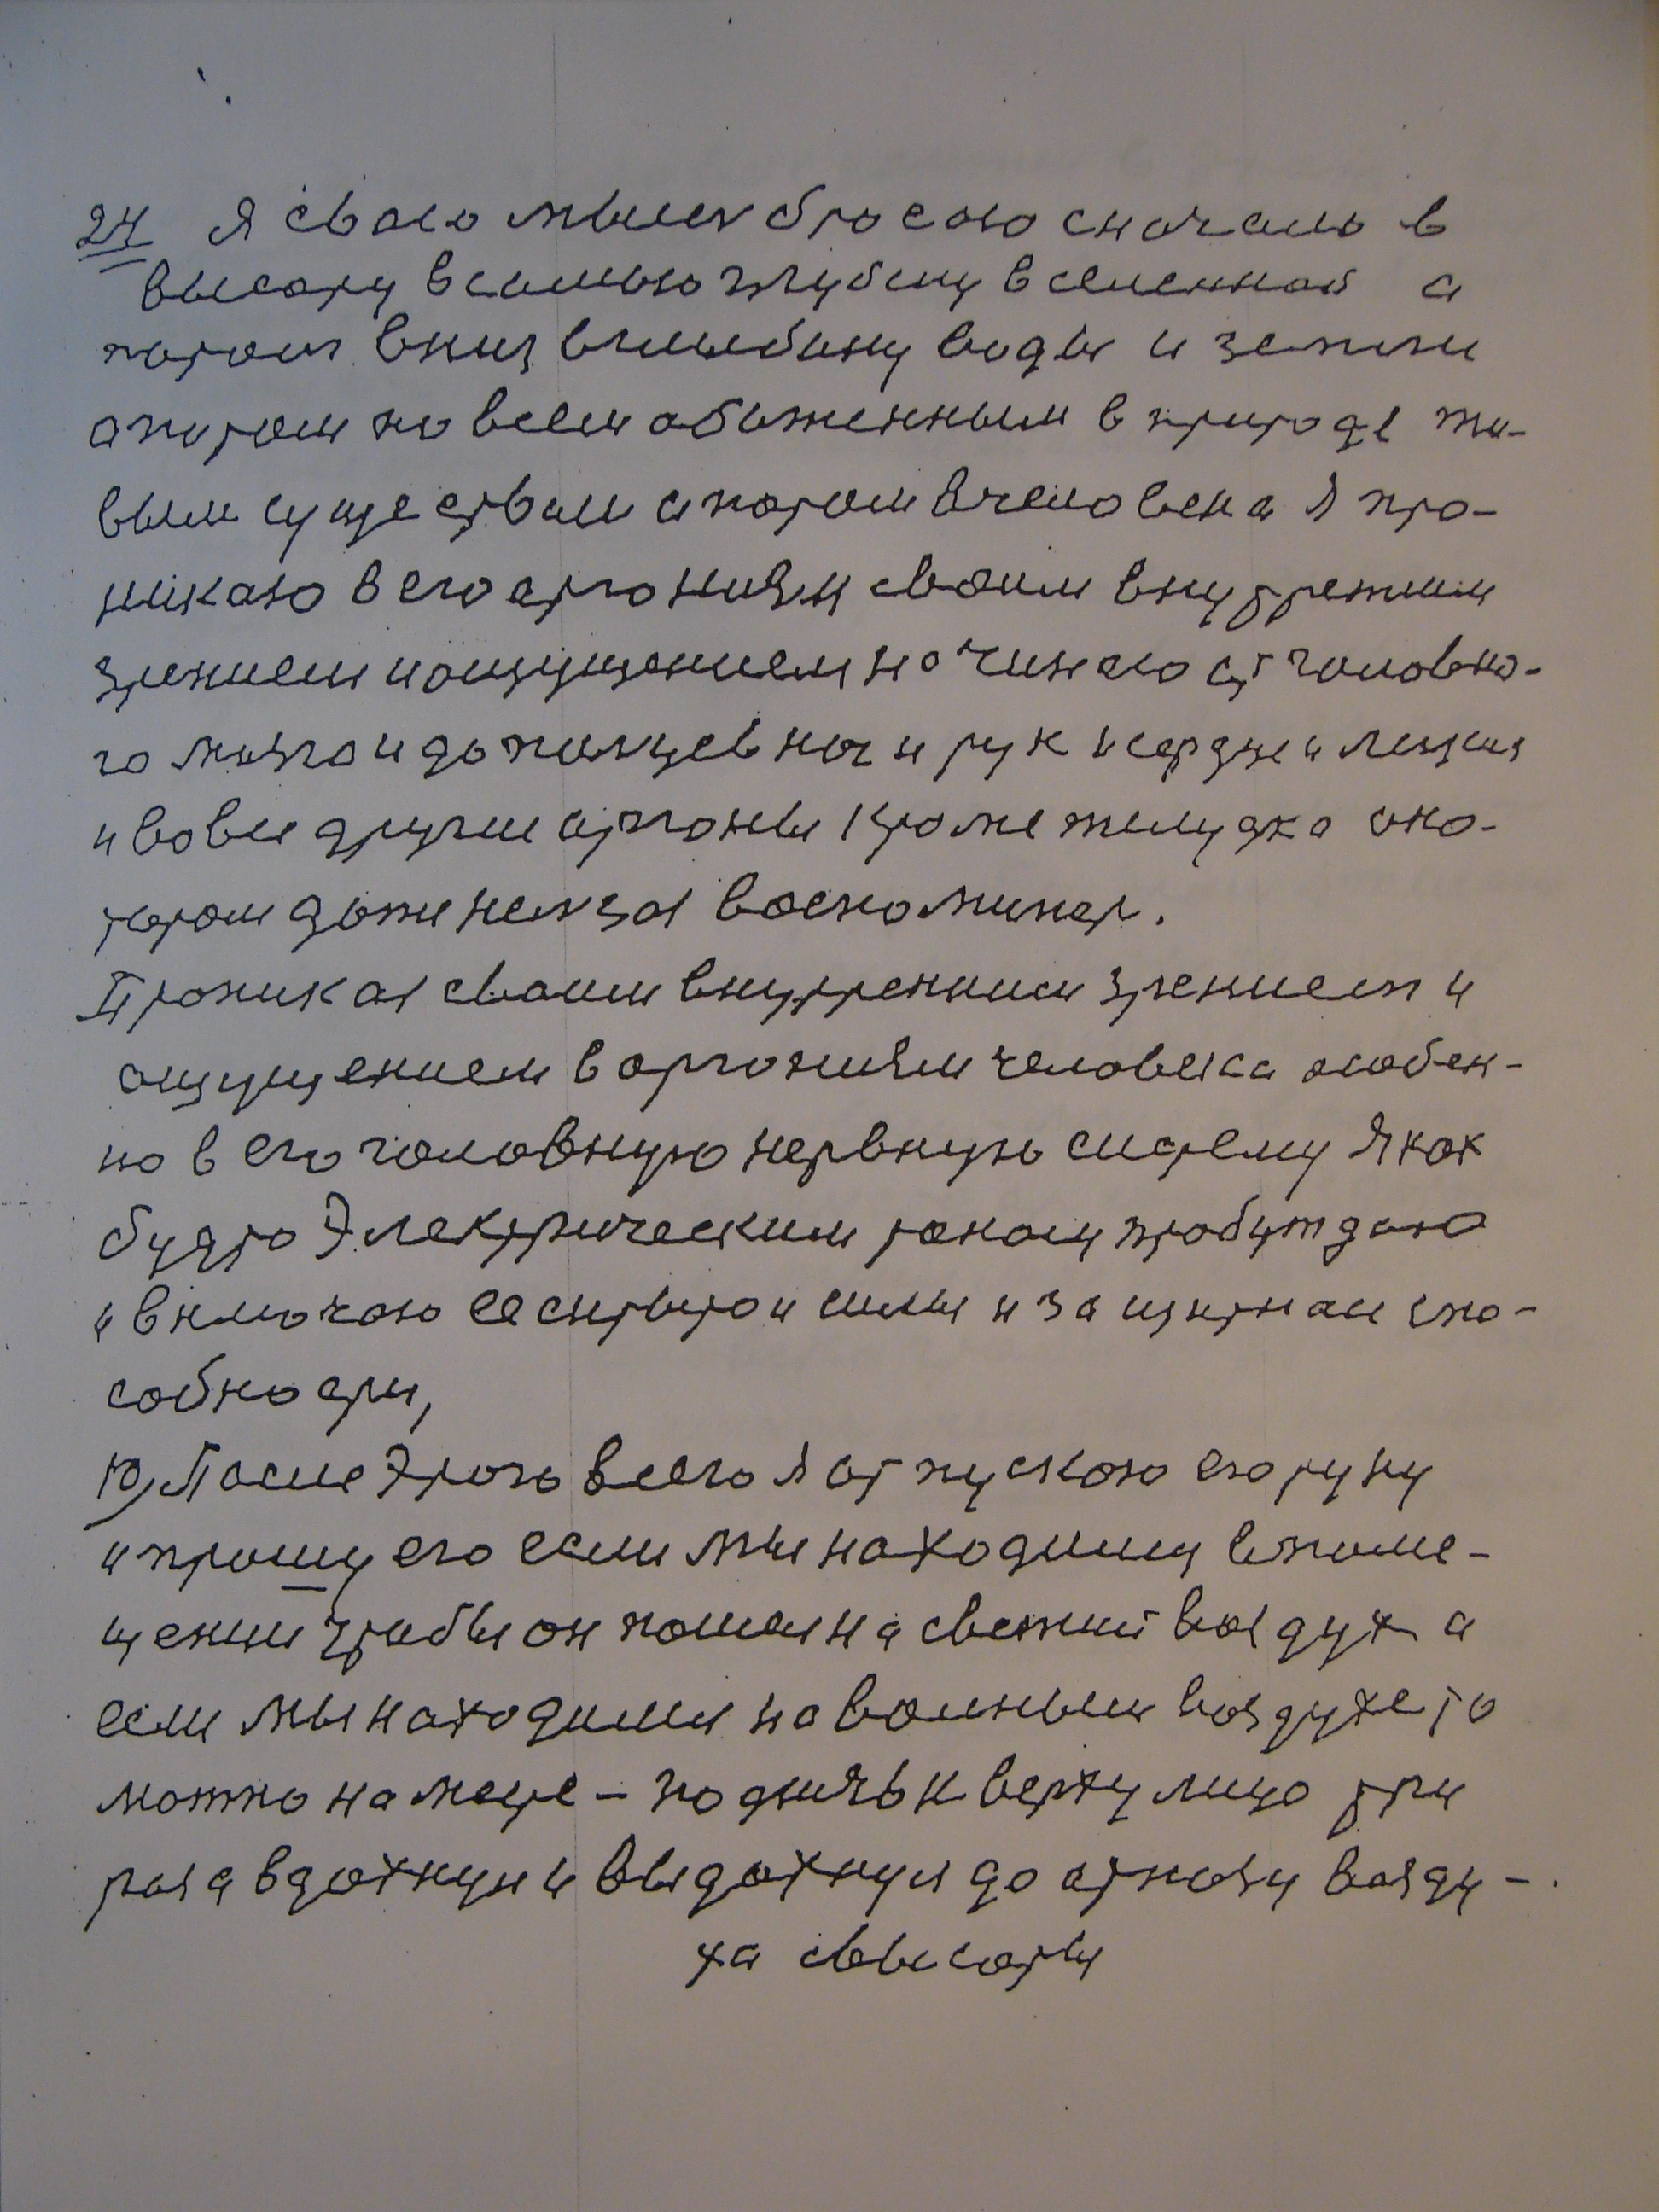 24 Я свою мысль бросаю сначало в
высоту в самую глубину вселенной а
потом вниз в глыбину воды и земли
а потом по всем обиженным в природе жи-
вым существам а потом в человека Я про-
никаю в его организм своим внутренним
зрением и ощущением начинаю от головно-
го мозга и до пальцев ног и рук и сердце и легкия
и во все другие органы кроме желудка о ко-
тором даже нельзя воспоминат.
Проникая своим внутренним зрением и
ощущением в организм человека особен-
но в его головную нервную систему Я как
будто Электрическим током пробуждаю
и включаю се скрытои силы и способ-
собности,
10) После Этого всего Я отпускаю его руку
и прошу его если мы находимся в поме-
щении чтобы он пошел на свежий воздух а
если мы находимся на вольным воздухе то
можно на месте – поднять к верху лицо три
раза вдохнуи и выдохнуя до отказу возду-
ха с высоты